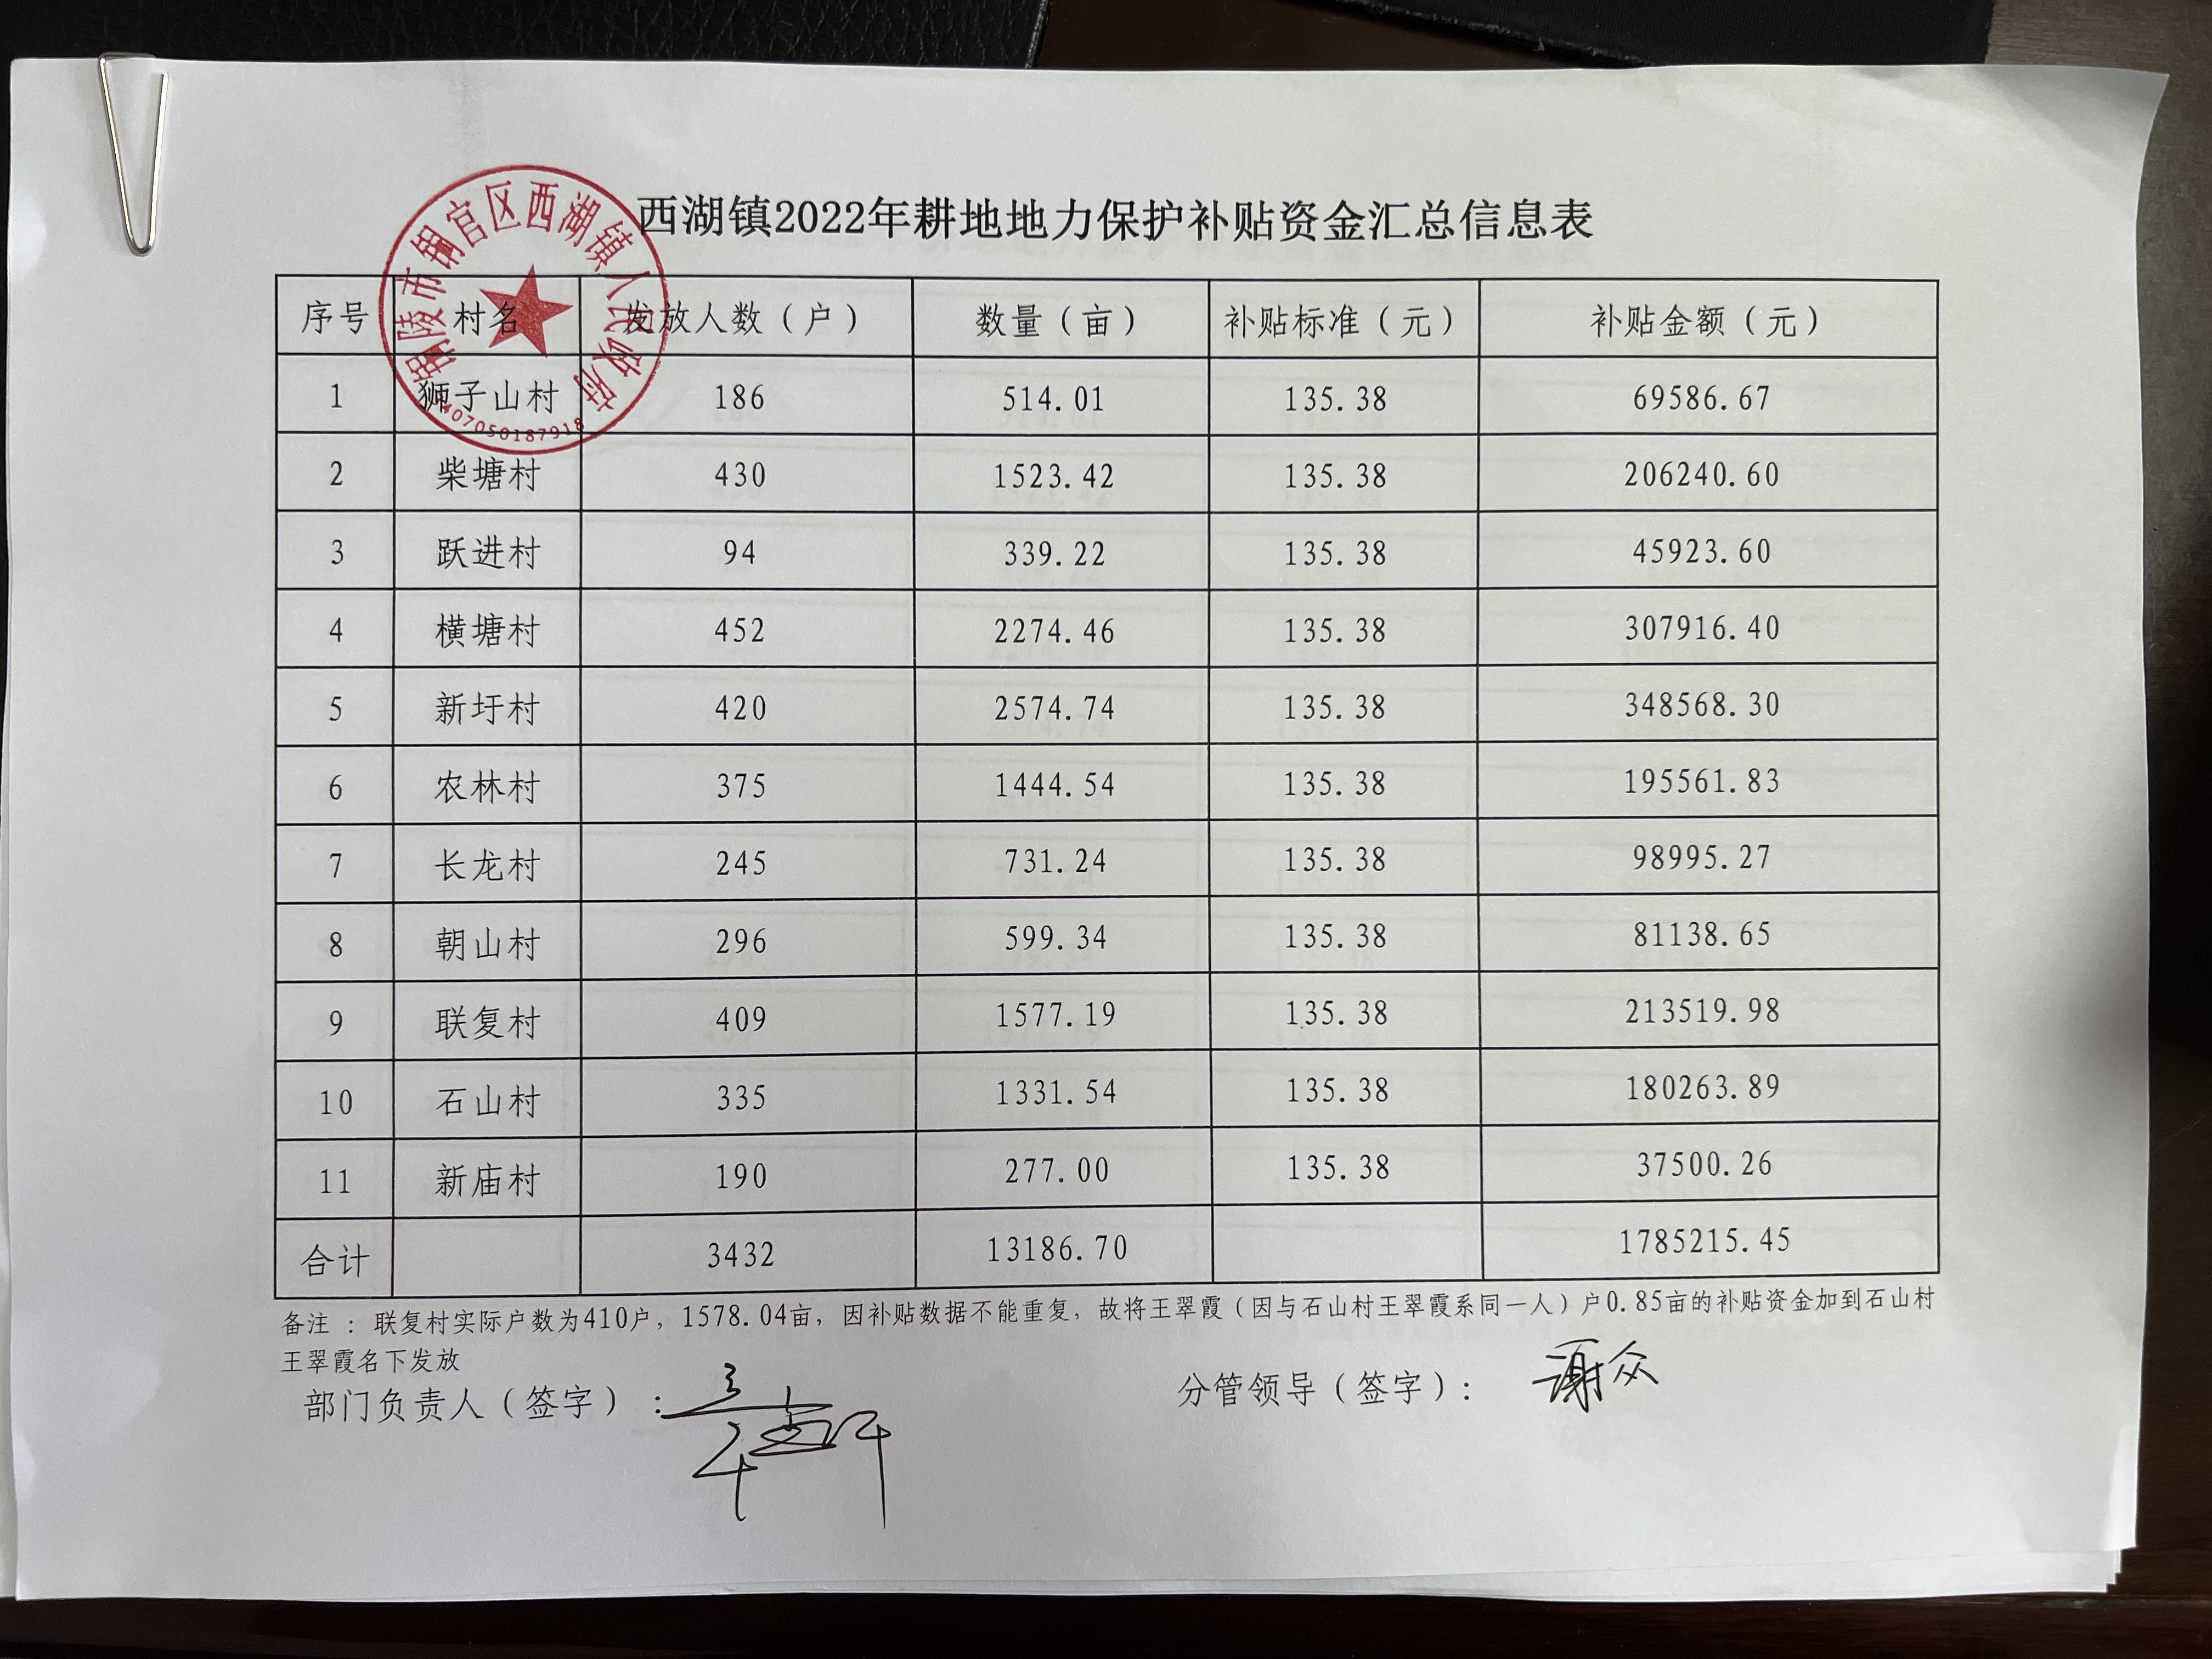 西湖镇2022年耕地地力保护补贴资金汇总信息表
铜陵市铜官区西湖镇人民政府
3407050187918
序号 村名 发放人数（户） 数量（亩） 补贴标准（元） 补贴金额（元）
1 狮子山村 186 514.01 135.38 69586.67
2 柴塘村 430 1523.42 135.38 206240.60
3 跃进村 94 339.22 135.38 45923.60
4 横塘村 452 2274.46 135.38 307916.40
5 新圩村 420 2574.74 135.38 348568.30
6 农林村 375 1444.54 135.38 195561.83
7 长龙村 245 731.24 135.38 98995.27
8 朝山村 296 599.34 135.38 81138.65
9 联复村 409 1577.19 135.38 213519.98
10 石山村 335 1331.54 135.38 180263.89
11 新庙村 190 277.00 135.38 37500.26
合计 3432 13186.70 1785215.45
备注 ：联复村实际户数为410户，1578.04亩，因补贴数据不能重复，故将王翠霞（因与石山村王翠霞系同一人）户0.85亩的补贴资金加到石山村
王翠霞名下发放
部门负责人（签字）： 分管领导（签字）：谢众